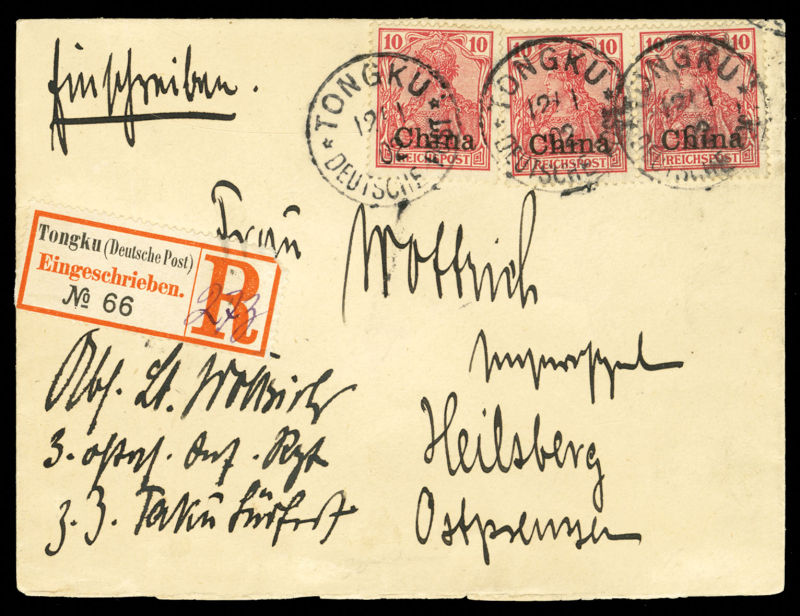 Einschreiben.
10 10
China
REICHSPOST
10 10
China
REICHSPOST
10 10
China
REICHSPOST
* TONGKU *
12/1
02
DEUTSCHE POST
* TONGKU *
12/1
02
DEUTSCHE
TONGKU
DEUTSCHE
Frau
Wottrich
Heilsberg
Ostpreussen
Tongku (Deutsche Post)
Eingeschrieben.
№ 66
R
273
Abs. Lt. Wottrich
3. ostas. Inf. Rgt
z. Z. Taku